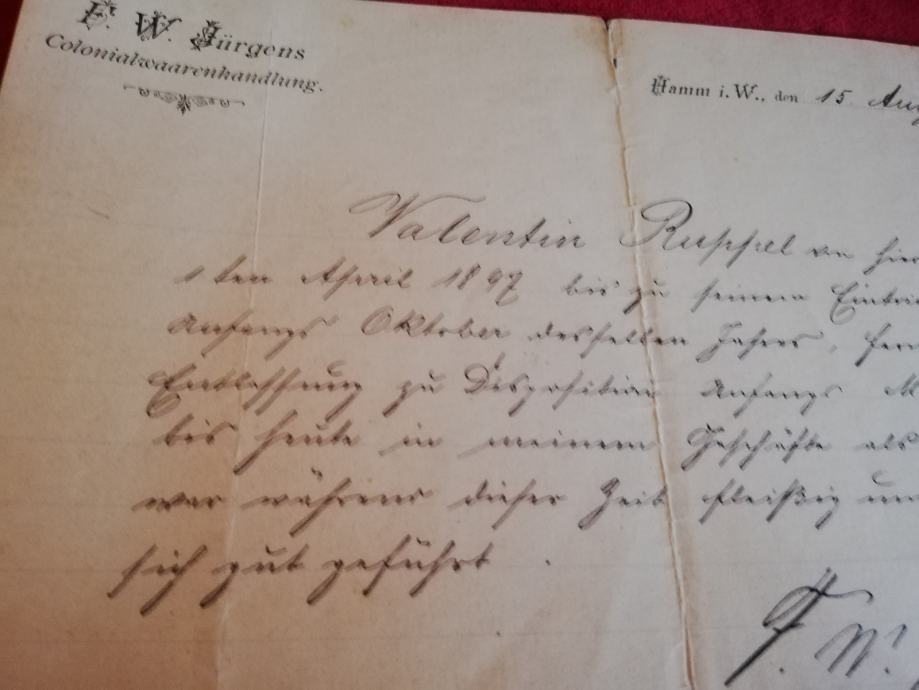 F. W. Jürgens
Colonialwaarenhandlung.
Hamm i. W., den 15 Aug
Valentin Ruppel von hier
1ten April 1897 bis zu seinem Eintri
Anfangs Oktober desselben Jahres, fer
Entlassung zu Disposition Anfangs
bis heute in meinem Geschäfte als
war während dieser Zeit fleißig un
sich gut geführt.
F. W.